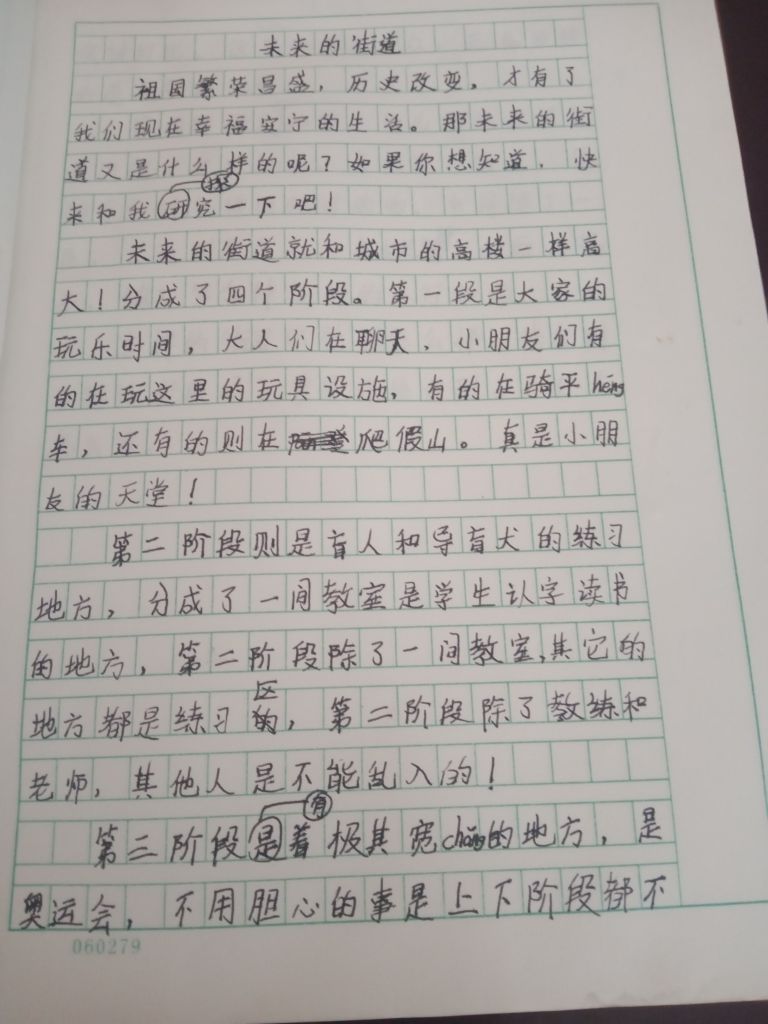 未来的街道
祖国繁荣昌盛，历史改变，才有了
我们现在幸福安宁的生活。那未来的街
道又是什么样的呢？如果你想知道，快
探
来和我研究一下吧！
未来的街道就和城市的高楼一样高
大！分成了四个阶段。第一段是大家的
玩乐时间，大人们在聊天，小朋友们有
的在玩这里的玩具设施，有的在骑平héng
车，还有的则在爬假山。真是小朋
友的天堂！
第二阶段则是盲人和导盲犬的练习
地方，分成了一间教室是学生认字读书
的地方，第二阶段除了一间教室,其它的
区
地方都是练习的，第二阶段除了教练和
老师，其他人是不能乱入的！
有
第三阶段是着极其宽chǎng的地方，是
奥运会，不用胆心的事是上下阶段都不
060279